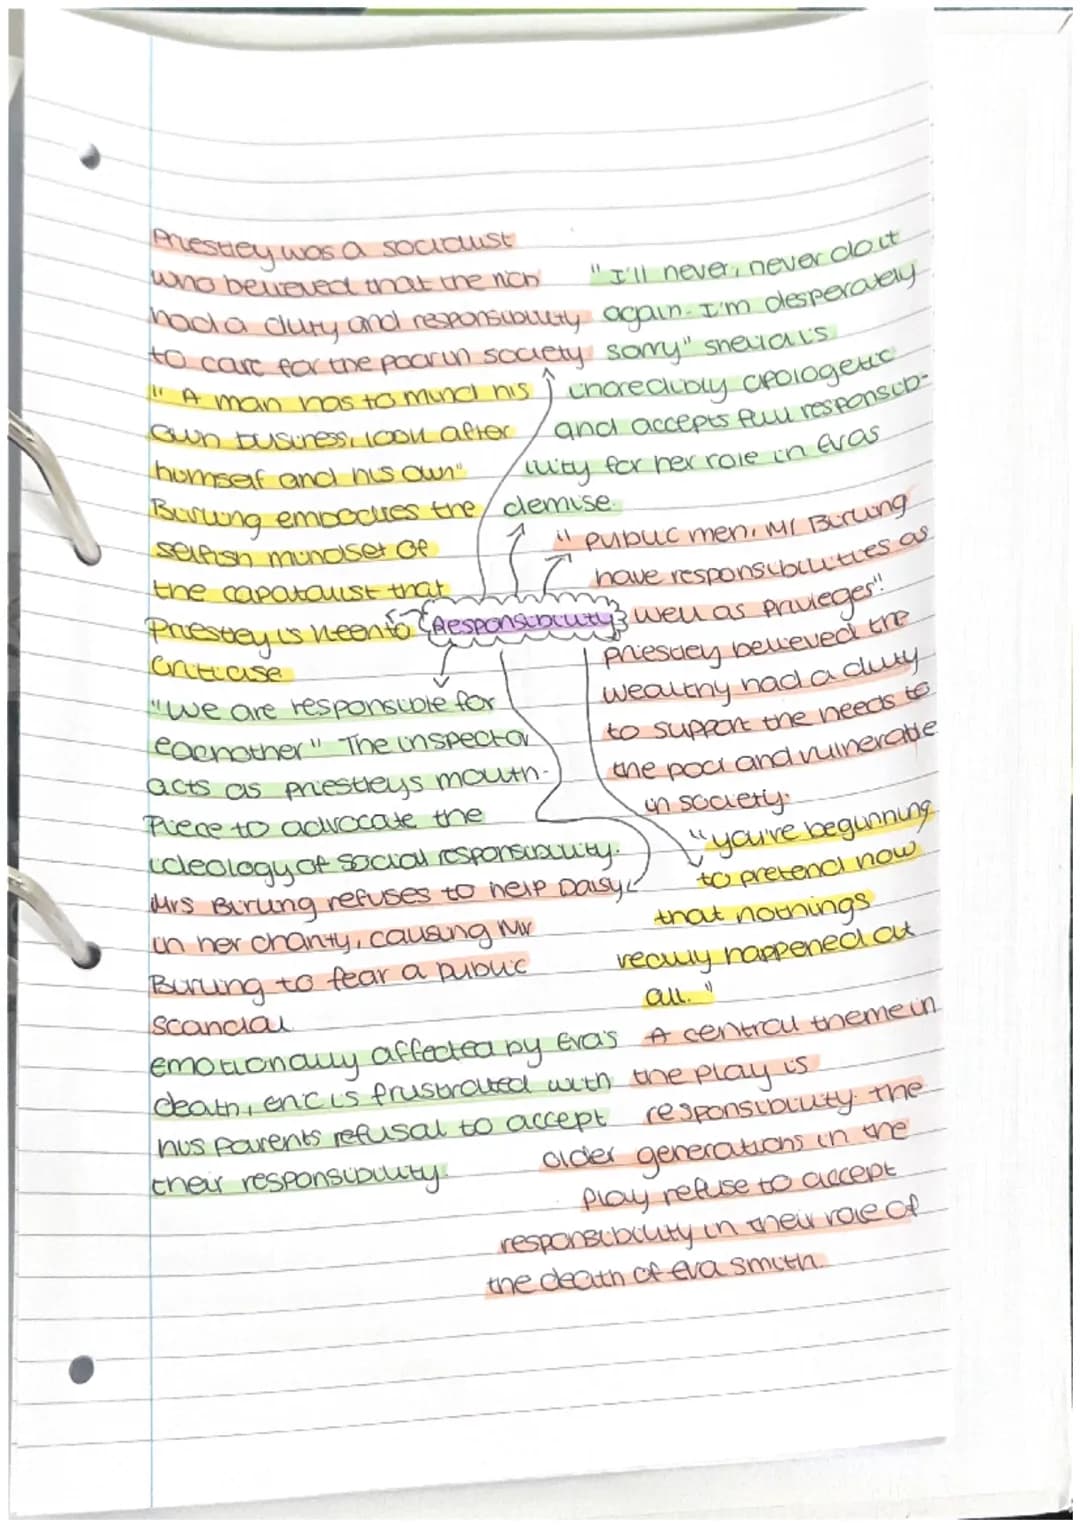 Priestley was a socialist
who believed that the rich
had a duty and responsibility
to care for the poor in society
"I'll never, never do it
again. I'm desperately
sorry" sheila is
incredibly apologetic
and accepts full responsib-
ility for her role in Evas
demise.
" A man has to mind his
own business, look after
himself and his own"
Birling embodies the
selfish mindset of
the capatalist that
Priestley is keen to
criticise
" public men, Mr Birling
have responsibilities as
well as privileges"
priestley believed the
wealthy had a duty
to support the needs to
the poor and vulnerable
in society.
Responsibility
"we are responsible for
eachother" The inspector
acts as priestleys mouth-
piece to advocate the
ideology of social responsibility.
"you're beginning
to pretend now
that nothings
really happened at
all."
Mrs Birling refuses to help Daisy
in her charity, causing Mr
Birling to fear a public
scandal
emotionally affected by Eva's
death, eric is frustrated with
his parents refusal to accept
their responsibility.
A central theme in
the play is
responsibility. the
older generations in the
play refuse to accept
responsibility in their role of
the death of eva smith.